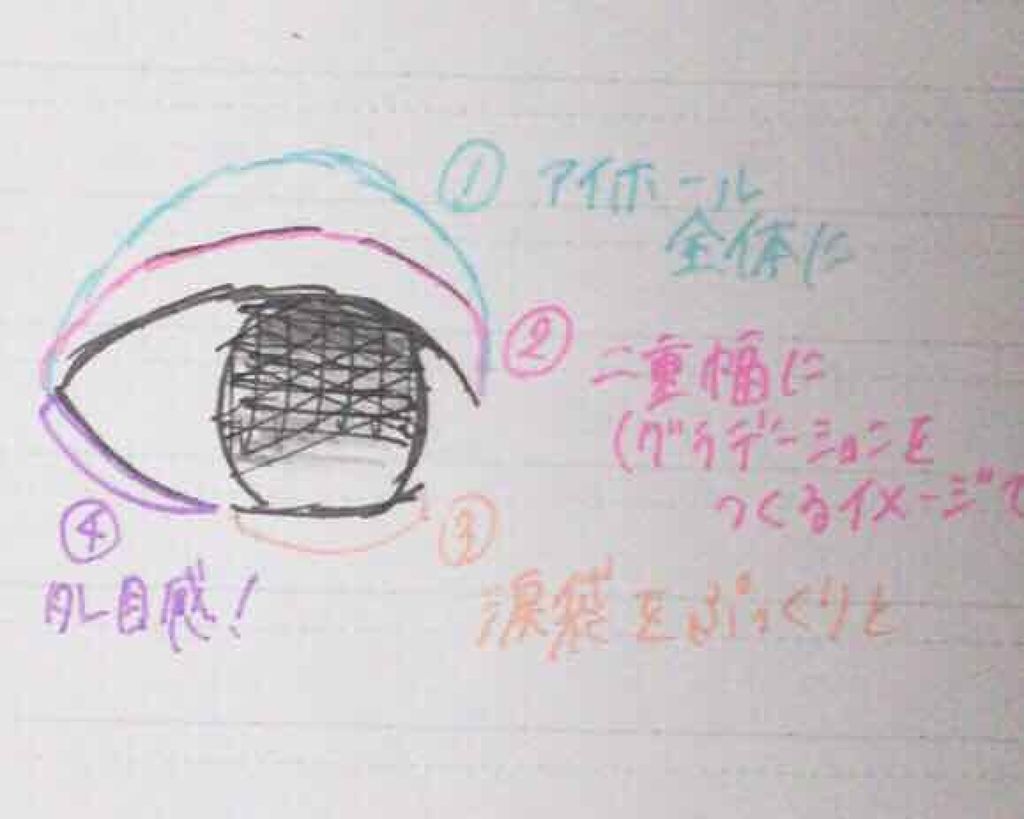 ① アイホール
全体に
② 二重幅に
(グラデーションを
つくるイメージで
③ 涙袋をぷっくりと
④ タレ目感!